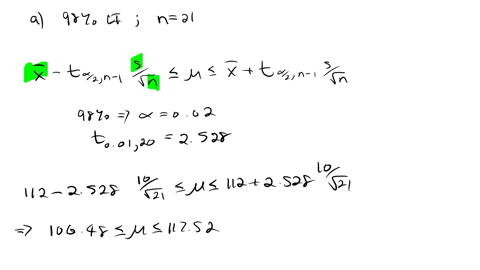 a) 98% CI ; n=21
x̄ - t α/2, n-1 s/√n ≤ μ ≤ x̄ + t α/2, n-1 s/√n
98% => α = 0.02
t 0.01, 20 = 2.528
112 - 2.528 10/√21 ≤ μ ≤ 112 + 2.528 10/√21
=> 106.48 ≤ μ ≤ 117.52